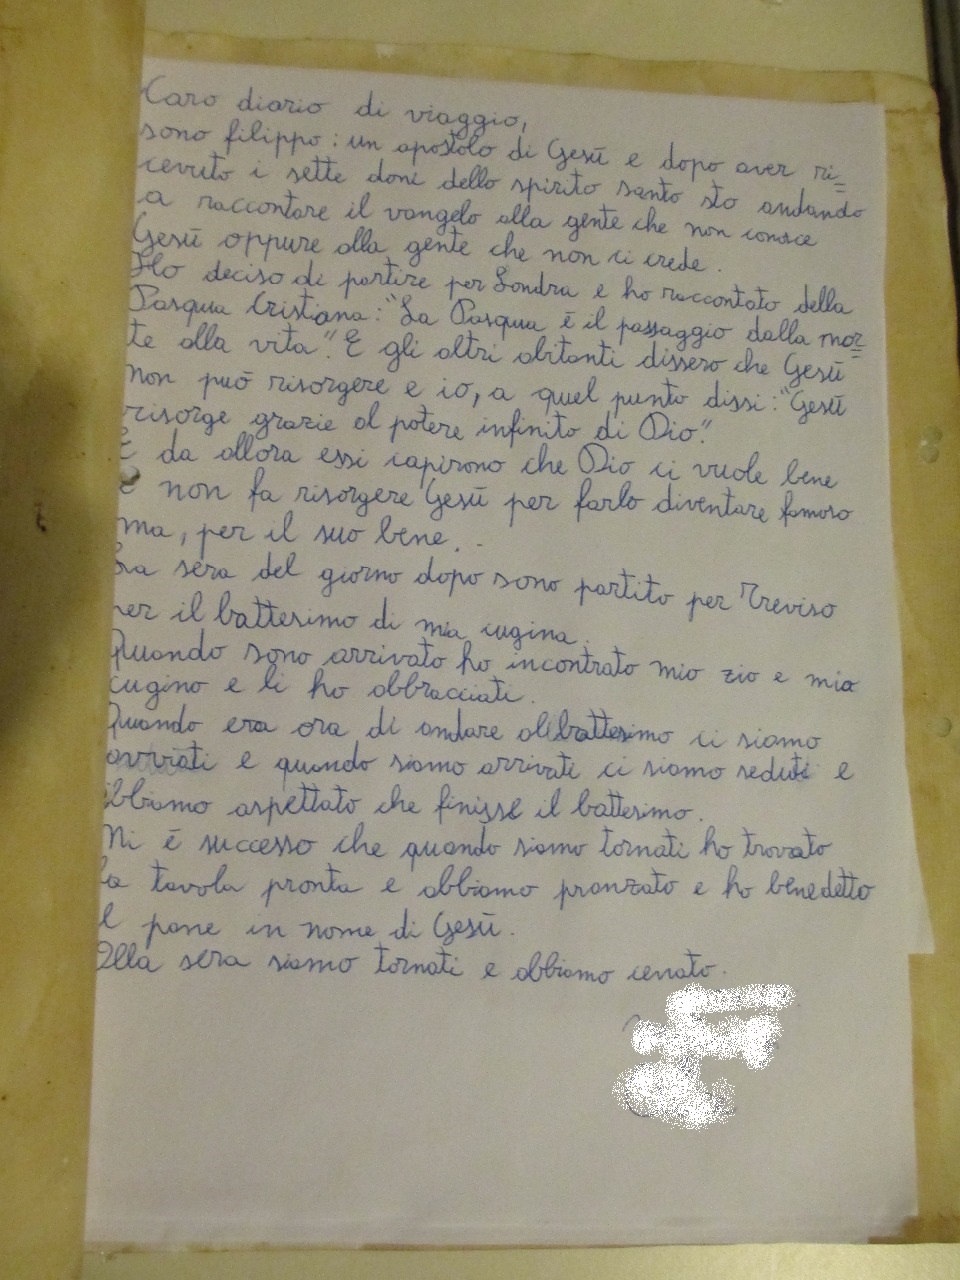 Caro diario di viaggio,
sono filippo: un apostolo di Gesū e dopo aver ri=
cevuto i sette doni dello spirito santo sto andando
a raccontare il vangelo alla gente che non conosce
Gesū oppure alla gente che non ci crede.
Ho deciso di partire per Londra e ho raccontato della
Pasqua Cristiana: "La Pasqua ē il passaggio dalla mor=
te alla vita". E gli altri abitanti dissero che Gesū
non puō risorgere e io, a quel punto dissi: "Gesū
risorge grazie al potere infinito di Dio."
E da allora essi capirono che Dio ci vuole bene
e non fa risorgere Gesū per farlo diventare famoso
ma, per il suo bene.
La sera del giorno dopo sono partito per Treviso
per il battesimo di mia cugina.
Quando sono arrivato ho incontrato mio zio e mio
cugino e li ho abbracciati.
Quando era ora di andare al battesimo ci siamo
avviati e quando siamo arrivati ci siamo seduti e
abbiamo aspettato che finisse il battesimo.
Mi ē successo che quando siamo tornati ho trovato
la tavola pronta e abbiamo pranzato e ho benedetto
il pane in nome di Gesū.
Alla sera siamo tornati e abbiamo cenato.